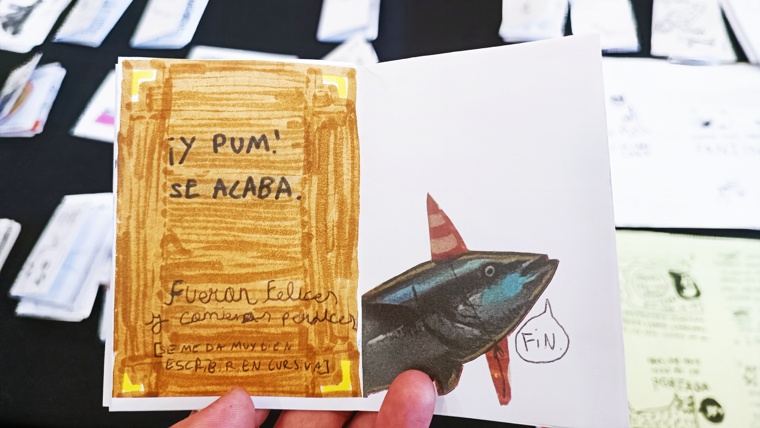 ¡Y PUM!
SE ACABA.
Fueron felices
y comieron perdices
[SE ME DA MUY BIEN
ESCRIBIR EN CURSIVA]
FiN.